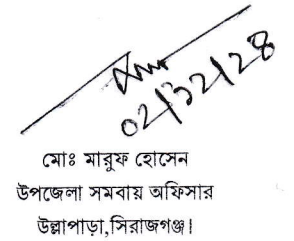 ০২/১২/২৪
মোঃ মারুফ হোসেন
উপজেলা সমবায় অফিসার
উল্লাপাড়া,সিরাজগঞ্জ।